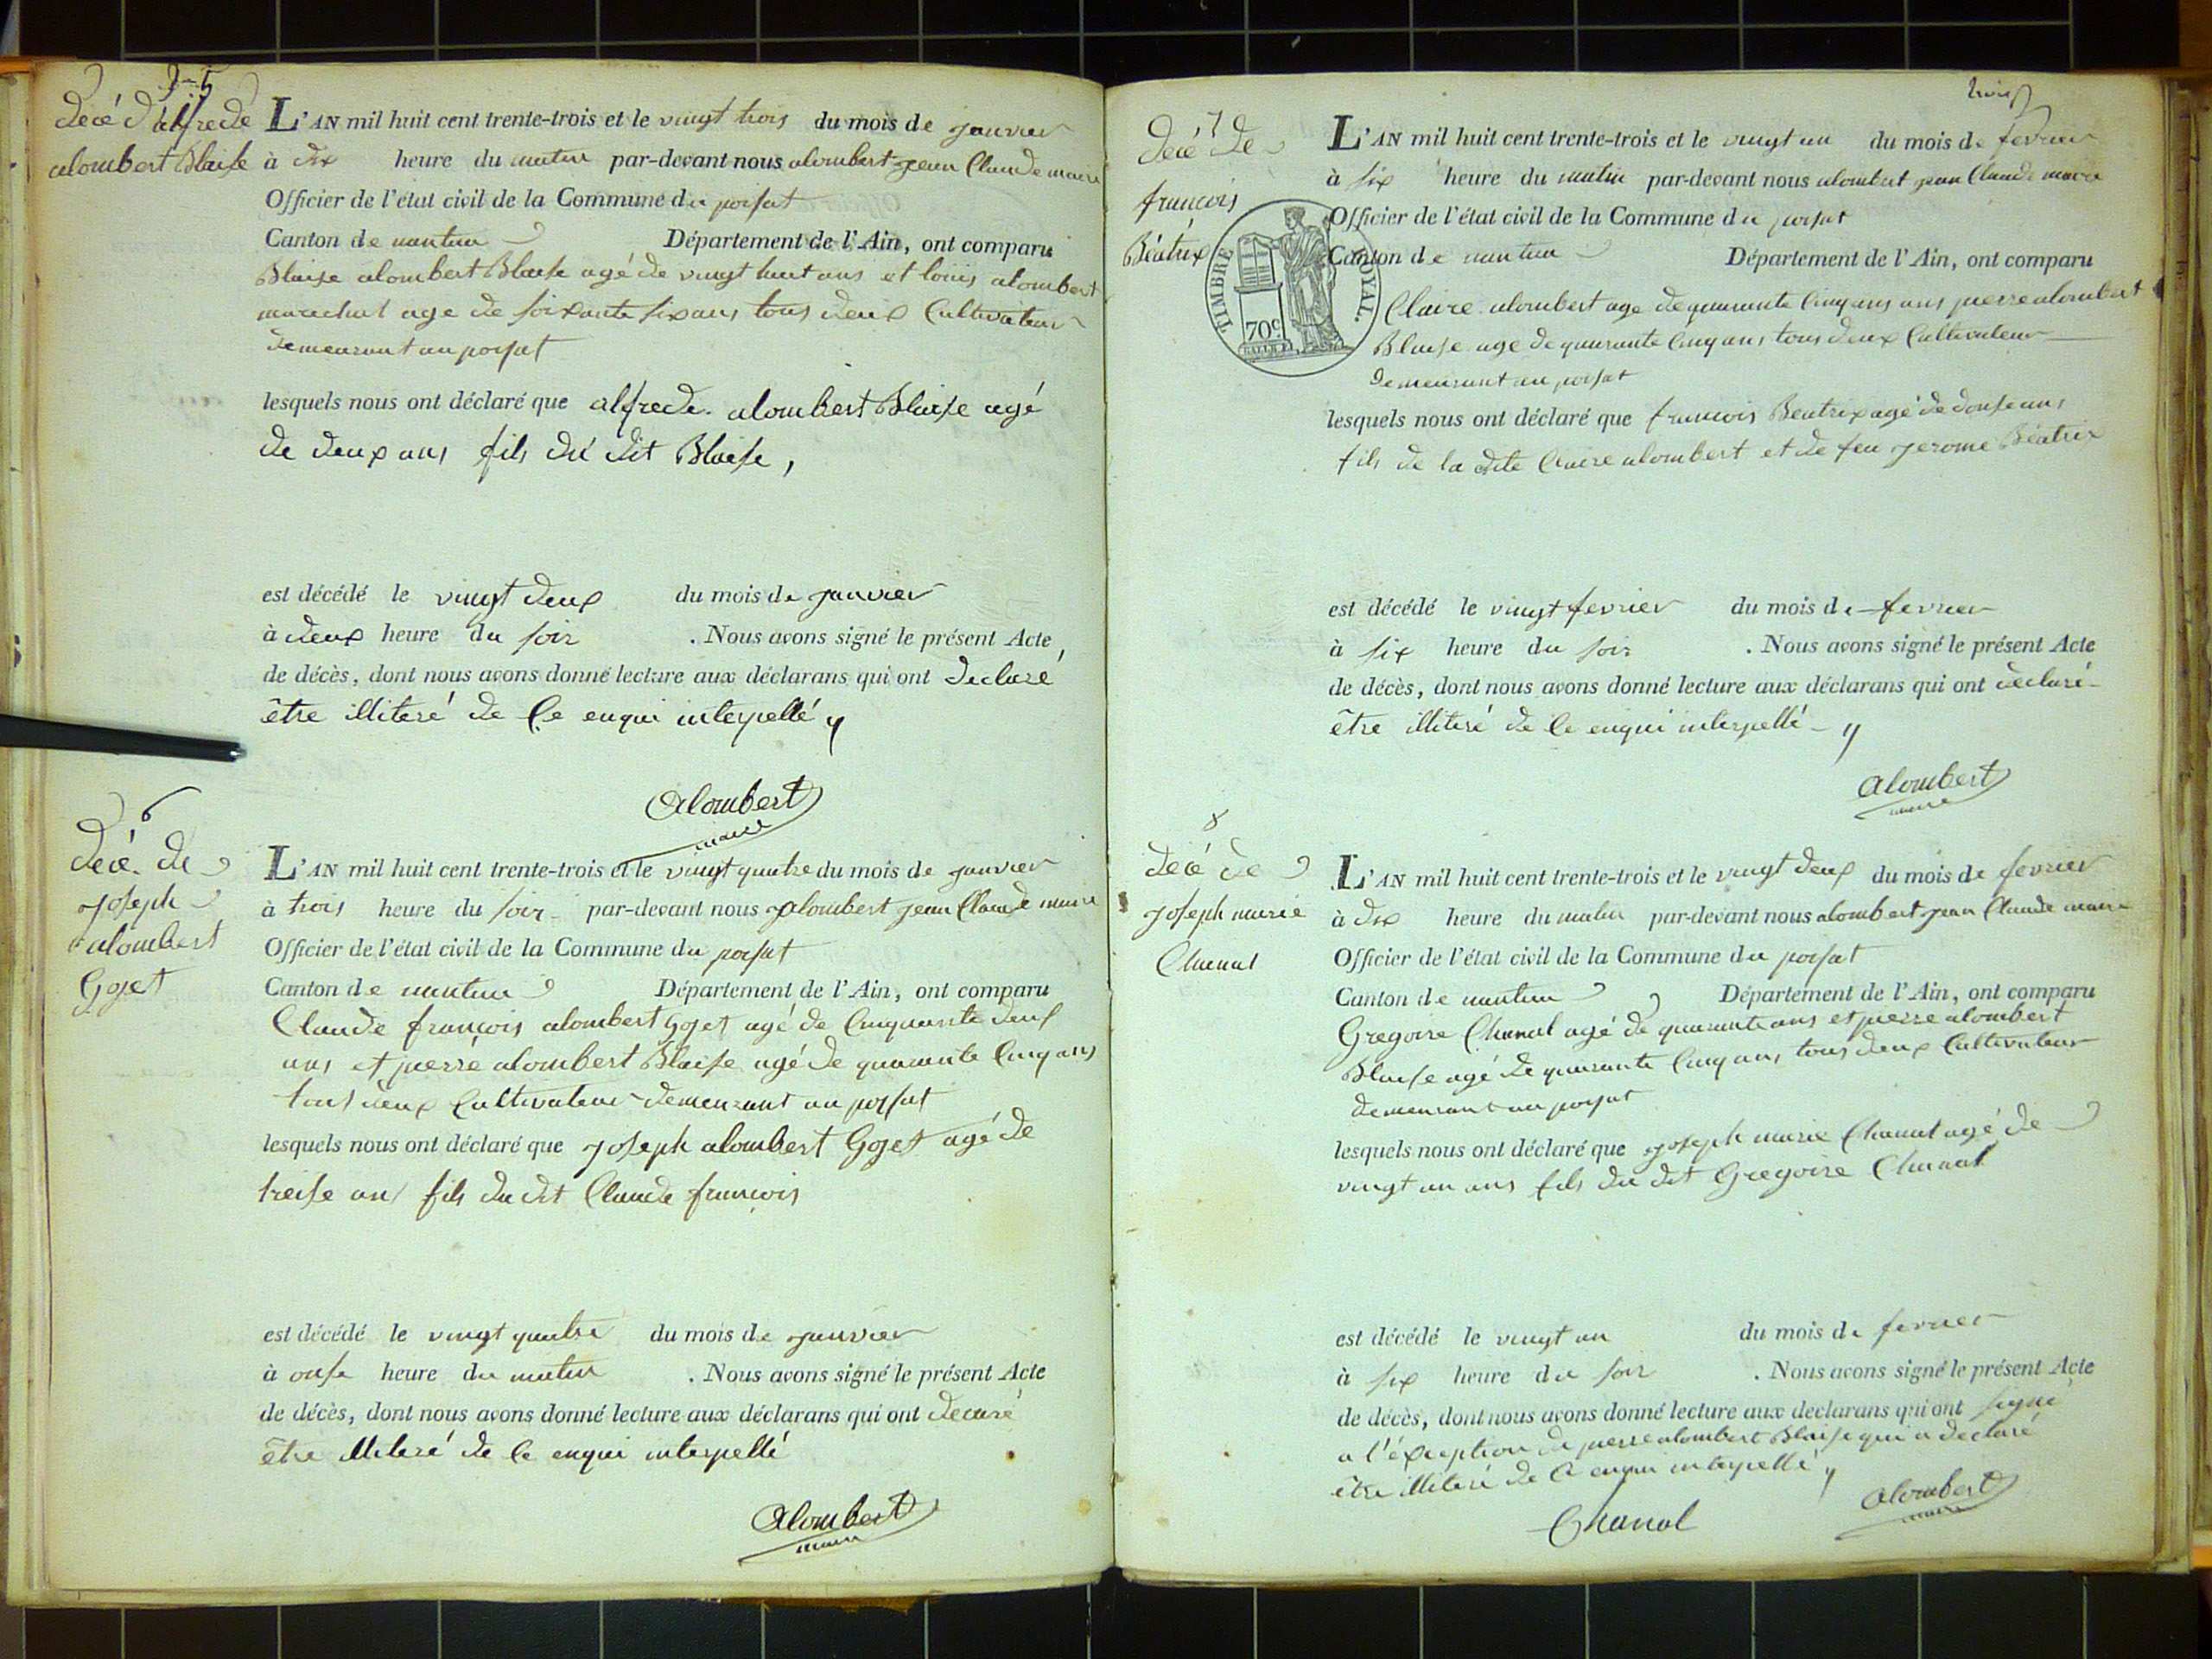 5
décé d'alfrede
alombert Blaise
L'AN mil huit cent trente-trois et le vingt trois du mois de janvier
à dix heure du matin par-devant nous alombert jean Claude maire
Officier de l'état civil de la Commune du poisat
Canton de nantua Département de l'Ain, ont comparu
Blaise alombert Blaise agé de vingt huit ans et louis alombert
marechal age de soixante six ans tous deux Cultivateur
demeurant au poisat
lesquels nous ont déclaré que alfrede alombert Blaise agé
de deux ans fils du dit Blaise,
est décédé le vingt deux du mois de janvier
à deux heure du soir . Nous avons signé le présent Acte
de décès, dont nous avons donné lecture aux déclarans qui ont declaré
être illiteré de Ce enqui interpellé
Alombert
maire
6
décé de
joseph
alombert
Gojet
L'AN mil huit cent trente-trois et le vingt quatre du mois de janvier
à trois heure du soir par-devant nous alombert jean Claude maire
Officier de l'état civil de la Commune du poisat
Canton de nantua Département de l'Ain, ont comparu
Claude françois alombert Gojet agé de Cinquante deux
ans et pierre alombert Blaise agé de quarante Cinq ans
tous deux Cultivateur demeurant au poisat
lesquels nous ont déclaré que joseph alombert Gojet agé de
treise ans fils du dit Claude françois
est décédé le vingt quatre du mois de janvier
à onse heure du matin . Nous avons signé le présent Acte
de décès, dont nous avons donné lecture aux déclarans qui ont declaré
être illiteré de Ce enqui interpellé
Alombert
maire
trois
7
décé de
francois
Béatrix
TIMBRE ROYAL.
70c.
L'AN mil huit cent trente-trois et le vingt un du mois de fevrier
à six heure du matin par-devant nous alombert jean Claude maire
Officier de l'état civil de la Commune du poisat
Canton de nantua Département de l'Ain, ont comparu
Claire alombert age de quarante Cinq ans ans pierre alombert
Blaise age de quarante Cinq ans tous deux Cultivateur
demeurant au poisat
lesquels nous ont déclaré que francois Beatrix agé de douse ans
fils de la dite Claire alombert et de feu jerome Béatrix
est décédé le vingt fevrier du mois de fevrier
à six heure du soir . Nous avons signé le présent Acte
de décès, dont nous avons donné lecture aux déclarans qui ont declaré
être illiteré de Ce enqui interpellé
alombert
maire
8
décé de
joseph marie
Chanal
L'AN mil huit cent trente-trois et le vingt deux du mois de fevrier
à dix heure du matin par-devant nous alombert jean Claude maire
Officier de l'état civil de la Commune du poisat
Canton de nantua Département de l'Ain, ont comparu
Gregoire Chanal agé de quarante ans et pierre alombert
Blaise agé de quarante Cinq ans tous deux Cultivateur
demeurant au poisat
lesquels nous ont déclaré que joseph marie Chanal agé de
vingt un ans fils du dit Gregoire Chanal
est décédé le vingt un du mois de fevrier
à six heure du soir . Nous avons signé le présent Acte
de décès, dont nous avons donné lecture aux declarans qui ont signé
a l'éxception de pierre alombert Blaise qui a declaré
être illiteré de Ce enqui interpellé
Chanal
alombert
maire